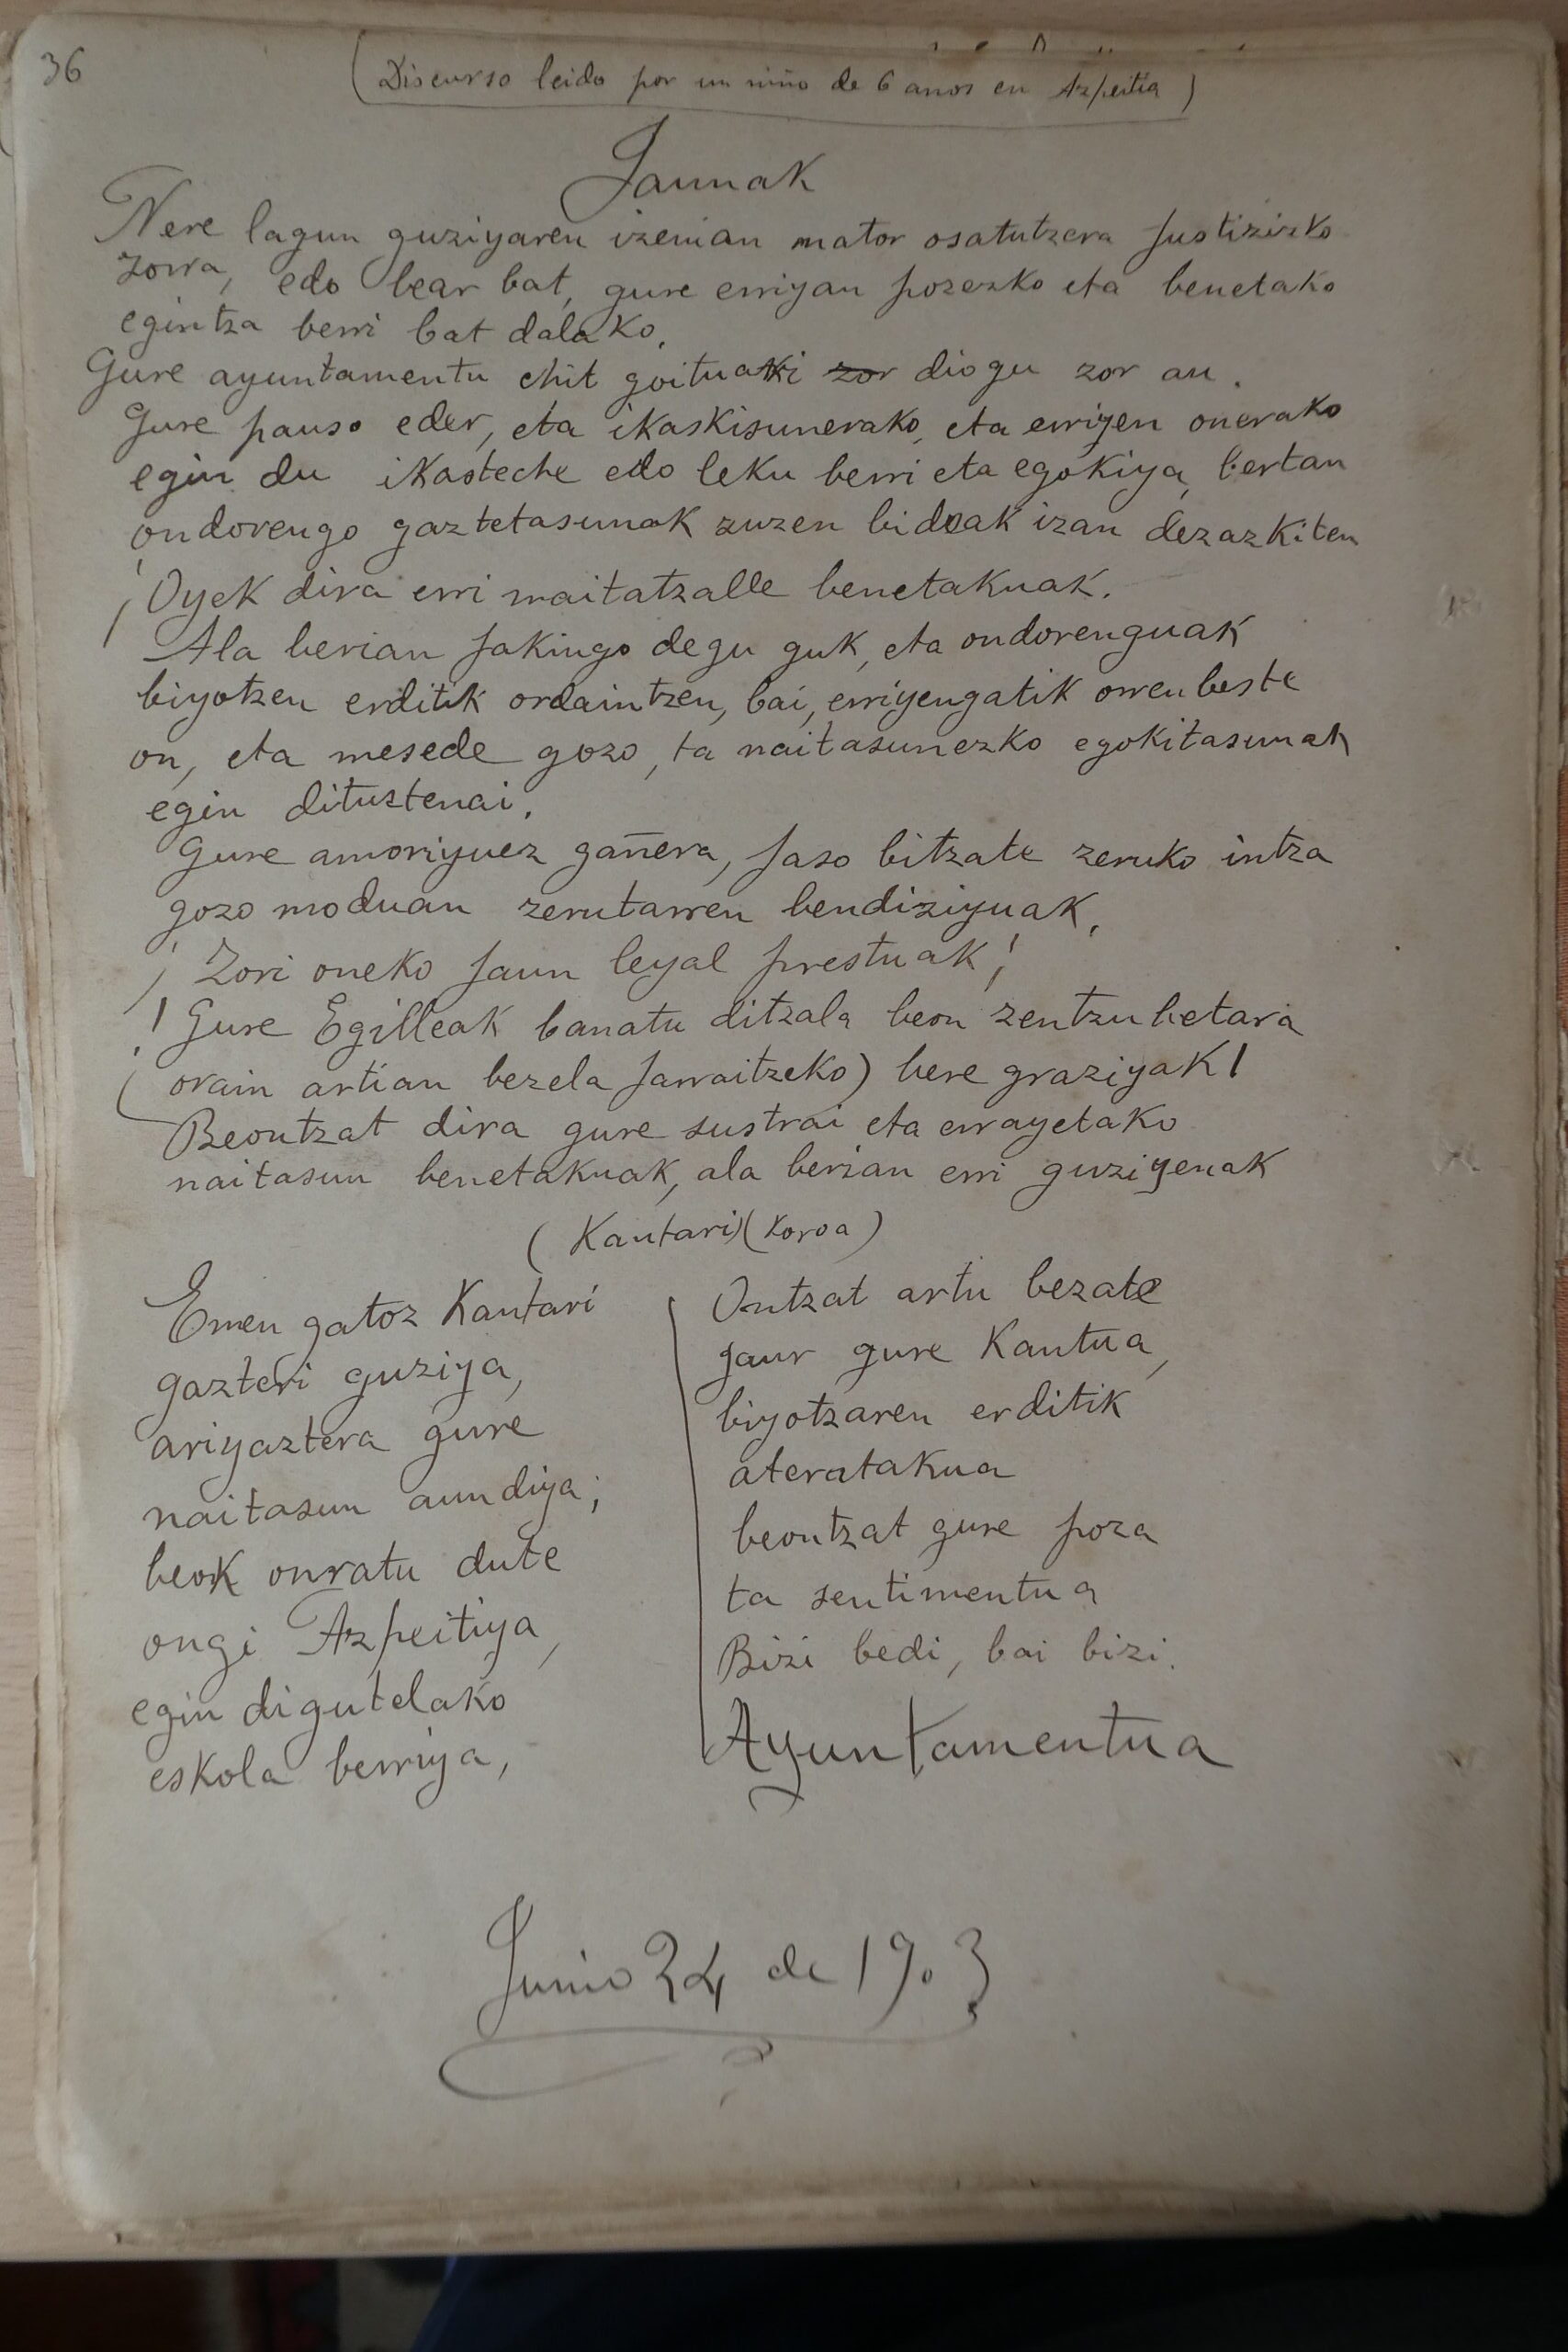 36
(Discurso leido por un niño de 6 anos en Azpeitia)
Jaunak
Nere lagun guziyaren izenian nator osatutzera Justizizko
zorra, edo bear bat, gure erriyan pozezko eta benetako
egintza berri bat dalako.
Gure ayuntamentu chit goituaki zor diogu zor au.
Gure pauso eder, eta ikaskisunerako, eta erriyen onerako
egin du ikasteche edo leku berri eta egokiya, bertan
ondorengo gaztetasunak zuzen bideak izan dezazkiten
¡Oyek dira erri maitatzalle benetakuak.
Ala berian Jakingo degu guk, eta ondorenguak
biyotzen erditik ordaintzen, bai, erriyengatik orrenbeste
on, eta mesede gozo, ta naitasunezko egokitasunak
egin dituztenai.
Gure amoriyuez gañera, Jaso bitzate zeruko intza
gozo moduan zerutarren bendiziyuak,
¡Zori oneko Jaun leyal prestuak!
¡Gure Egilleak banatu ditzala beon zentzubetara
(orain artian bezela Jarraitzeko) bere graziyak!
Beontzat dira gure sustrai eta errayetako
naitasun benetakuak, ala berian erri guziyenak
(Kantari) (Koroa)
Emen gatoz Kantari
gazteri guziya,
ariyaztera gure
naitasun aundiya;
beok onratu dute
ongi Azpeitiya,
egin digutelako
eskola berriya,
Ontzat artu bezate
gaur gure Kantua,
biyotzaren erditik
ateratakua
beontzat gure poza
ta sentimentua
Bizi bedi, bai bizi.
Ayuntamentua
Junio 24 de 1903